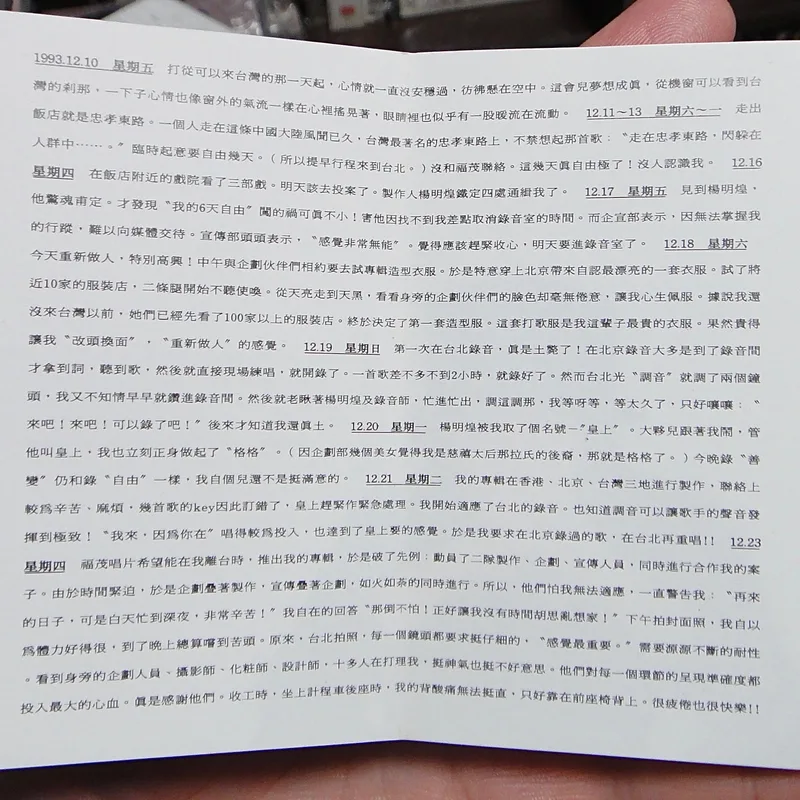 1993.12.10　星期五　打從可以來台灣的那一天起，心情就一直沒安穩過，彷彿懸在空中。這會兒夢想成眞，從機窗可以看到台
灣的剎那，一下子心情也像窗外的氣流一樣在心裡搖晃著，眼睛裡也似乎有一股暖流在流動。　12.11～13　星期六～一　走出
飯店就是忠孝東路。一個人走在這條中國大陸風聞已久，台灣最著名的忠孝東路上，不禁想起那首歌：〝走在忠孝東路，閃躲在
人群中⋯⋯。〞臨時起意要自由幾天。（所以提早行程來到台北。）沒和福茂聯絡。這幾天眞自由極了！沒人認識我。　12.16
星期四　在飯店附近的戲院看了三部戲。明天該去投案了。製作人楊明煌鐵定四處通緝我了。　12.17　星期五　見到楊明煌，
他驚魂甫定。才發現〝我的6天自由〞闖的禍可眞不小！害他因找不到我差點取消錄音室的時間。而企宣部表示，因無法掌握我
的行蹤，難以向媒體交待。宣傳部頭頭表示，〝感覺非常無能〞。覺得應該趕緊收心，明天要進錄音室了。　12.18　星期六
今天重新做人，特別高興！中午與企劃伙伴們相約要去試專輯造型衣服。於是特意穿上北京帶來自認最漂亮的一套衣服。試了將
近10家的服裝店，二條腿開始不聽使喚。從天亮走到天黑，看看身旁的企劃伙伴們的臉色却毫無倦意，讓我心生佩服。據說我還
沒來台灣以前，她們已經先看了100家以上的服裝店。終於決定了第一套造型服。這套打歌服是我這輩子最貴的衣服。果然貴得
讓我〝改頭換面〞，〝重新做人〞的感覺。　12.19　星期日　第一次在台北錄音，眞是土斃了！在北京錄音大多是到了錄音間
才拿到詞，聽到歌，然後就直接現場練唱，就開錄了。一首歌差不多不到2小時，就錄好了。然而台北光〝調音〞就調了兩個鐘
頭，我又不知情早早就鑽進錄音間。然後就老瞅著楊明煌及錄音師，忙進忙出，調這調那，我等呀等，等太久了，只好嚷嚷：〝
來吧！來吧！可以錄了吧！〞後來才知道我還眞土。　12.20　星期一　楊明煌被我取了個名號－〝皇上〞。大夥兒跟著我鬧，管
他叫皇上，我也立刻正身做起了〝格格〞。（因企劃部幾個美女覺得我是慈禧太后那拉氏的後裔，那就是格格了。）今晚錄〝善
變〞仍和錄〝自由〞一樣，我自個兒還不是挺滿意的。　12.21　星期二　我的專輯在香港、北京、台灣三地進行製作，聯絡上
較爲辛苦、麻煩，幾首歌的key因此訂錯了，皇上趕緊作緊急處理。我開始適應了台北的錄音。也知道調音可以讓歌手的聲音發
揮到極致！〝我來，因爲你在〞唱得較爲投入，也達到了皇上要的感覺。於是我要求在北京錄過的歌，在台北再重唱!!　12.23
星期四　福茂唱片希望能在我離台時，推出我的專輯，於是破了先例；動員了二隊製作、企劃、宣傳人員，同時進行合作我的案
子。由於時間緊迫，於是企劃疊著製作，宣傳疊著企劃，如火如荼的同時進行。所以，他們怕我無法適應，一直警告我：〝再來
的日子，可是白天忙到深夜，非常辛苦！〞我自在的回答〝那倒不怕！正好讓我沒有時間胡思亂想家！〞下午拍封面照，我自以
爲體力好得很，到了晚上總算嚐到苦頭。原來，台北拍照，每一個鏡頭都要求挺仔細的，〝感覺最重要。〞需要源源不斷的耐性
。看到身旁的企劃人員、攝影師、化粧師、設計師，十多人在打理我，挺神氣也挺不好意思。他們對每一個環節的呈現準確度都
投入最大的心血。眞是感謝他們。收工時，坐上計程車後座時，我的背酸痛無法挺直，只好靠在前座椅背上。很疲倦也很快樂!!